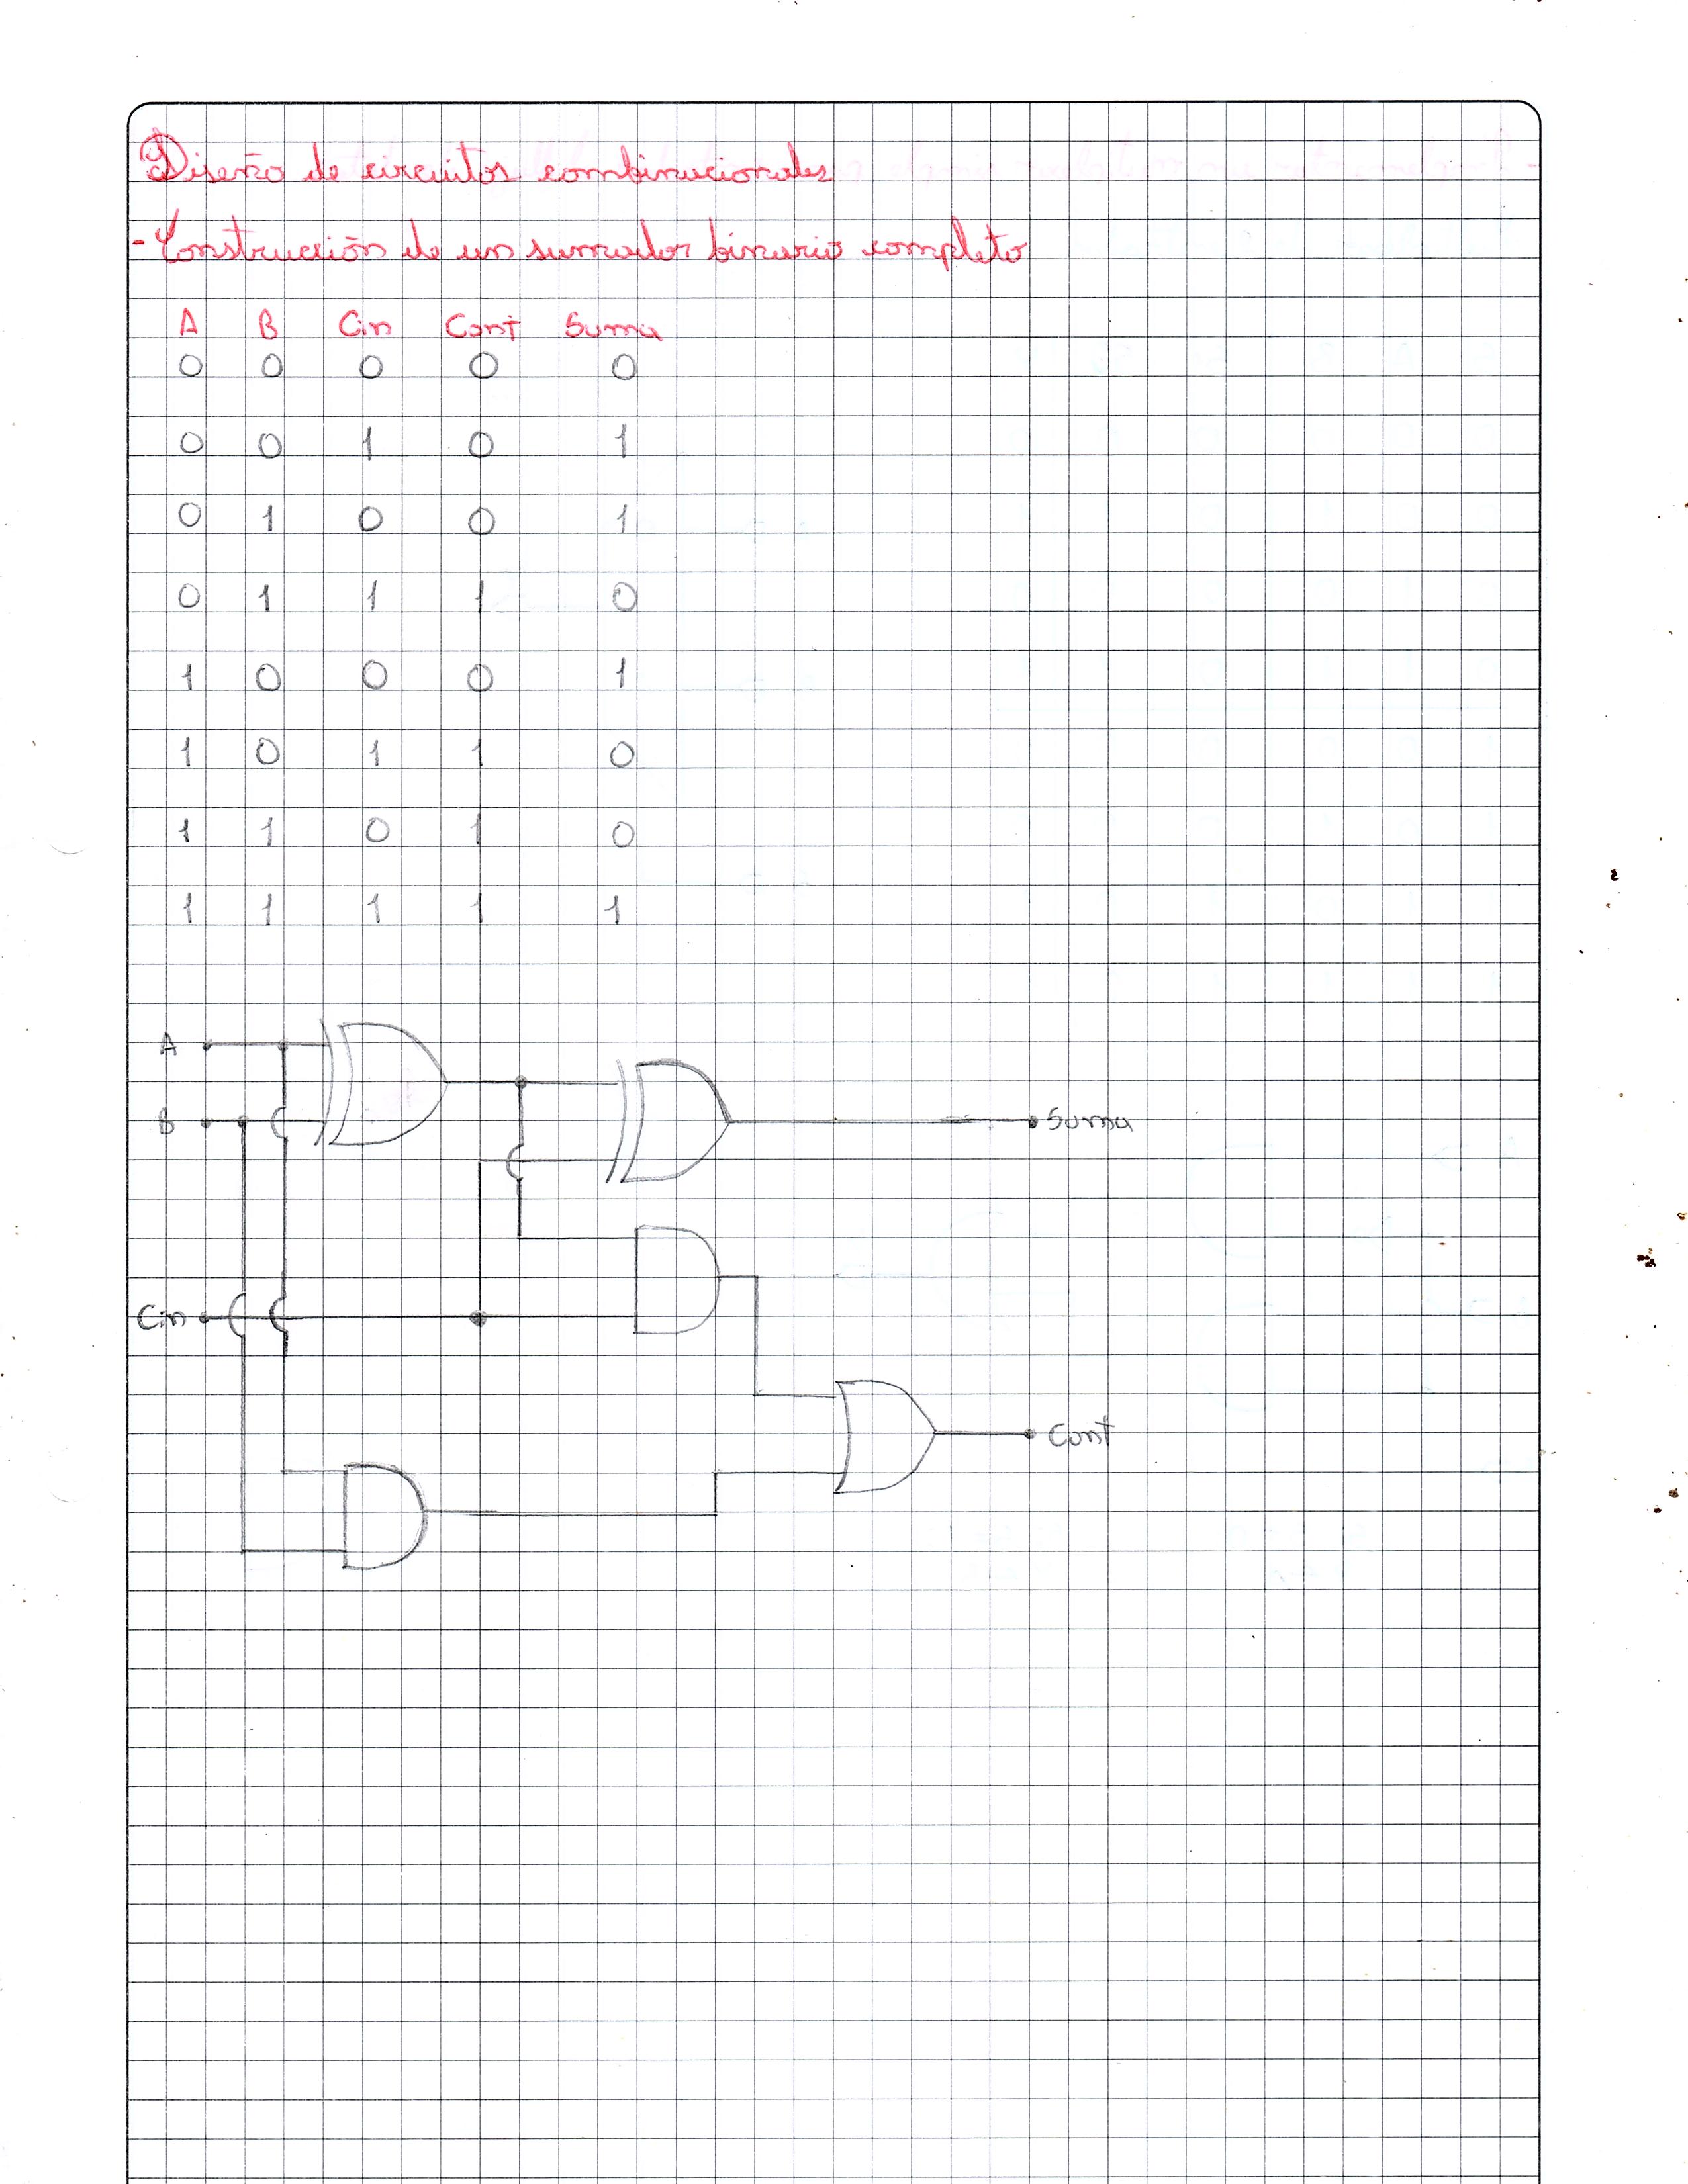 Diseño de circuitos combinacionales
- Construcción de un sumador binario completo
A B Cin Cont Suma
0 0 0 0 0
0 0 1 0 1
0 1 0 0 1
0 1 1 1 0
1 0 0 0 1
1 0 1 1 0
1 1 0 1 0
1 1 1 1 1
A
B
Suma
Cin
Cont